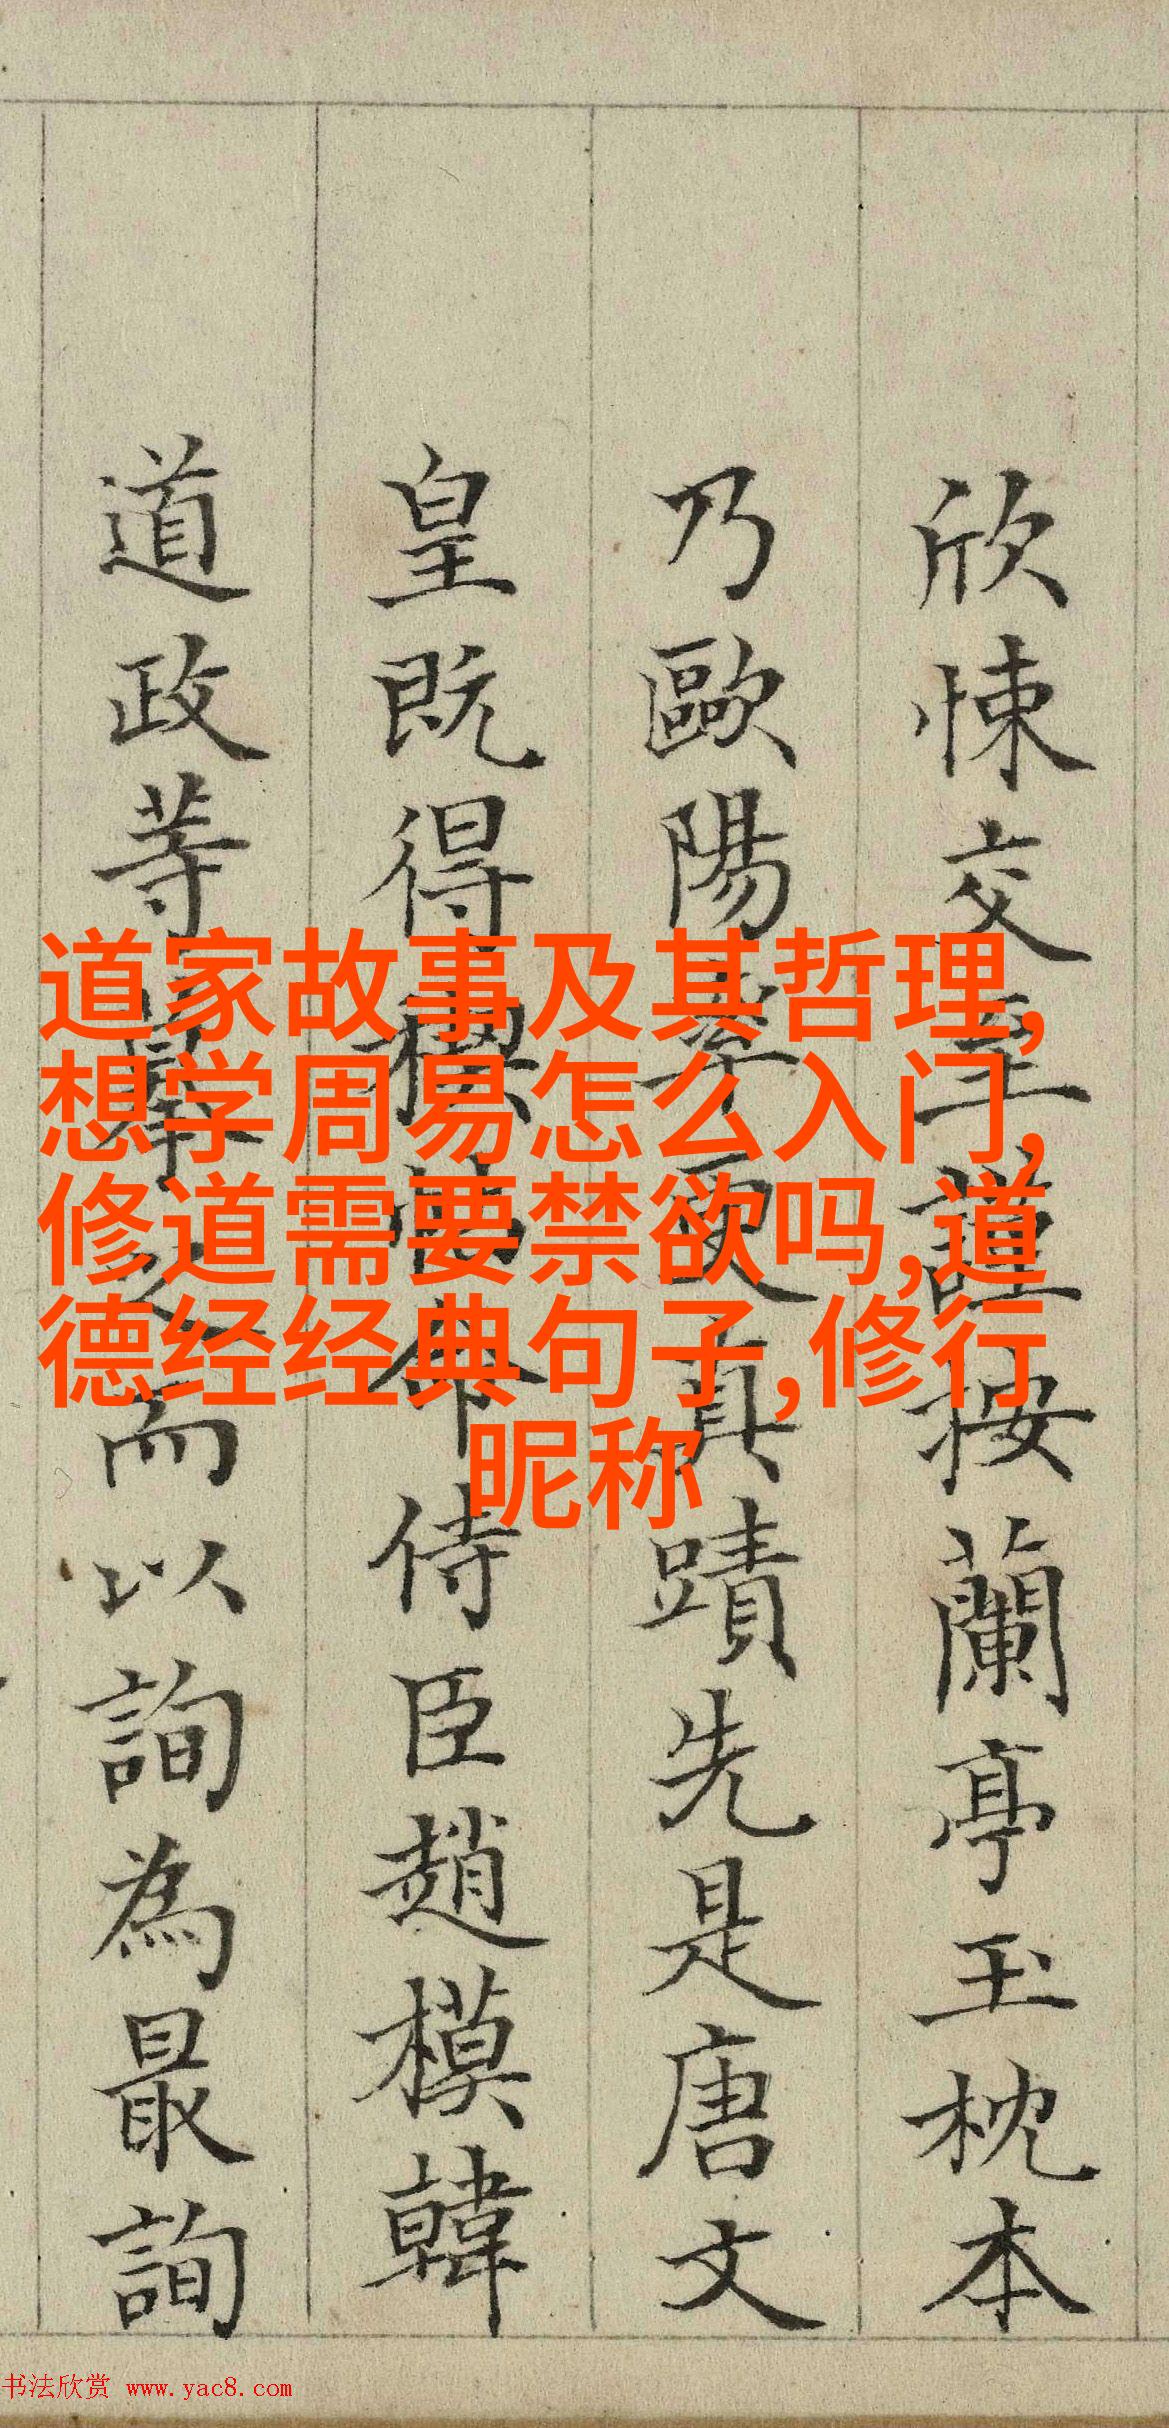 欣悚交至謹按蘭亭玉枕本
乃歐陽率更真蹟先是唐文
皇既得禊帖命侍臣趙模韓
道政等之而以詢為最詢
道家故事及其哲理,
想学周易怎么入门,
修道需要禁欲吗,道
德经经典句子,修行
昵称
书法欣赏 www.yac8.com